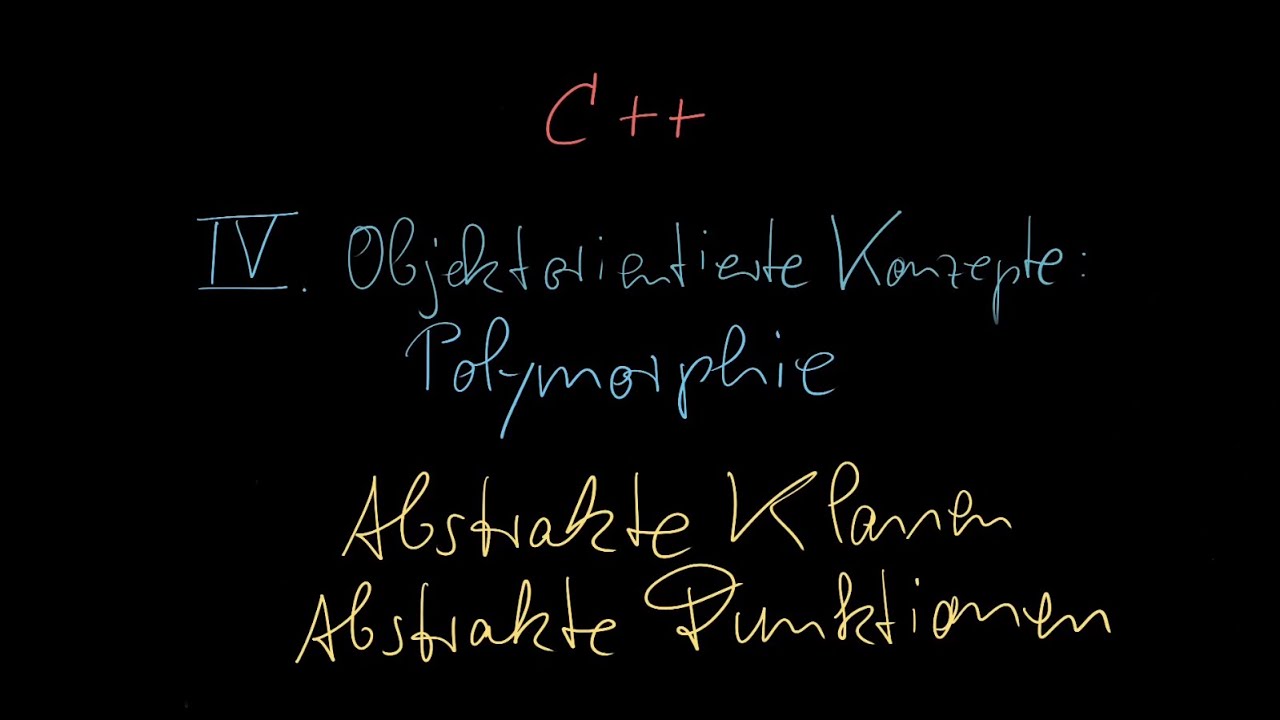 C++
IV. Objektorientierte Konzepte:
Polymorphie
Abstrakte Klassen
Abstrakte Funktionen